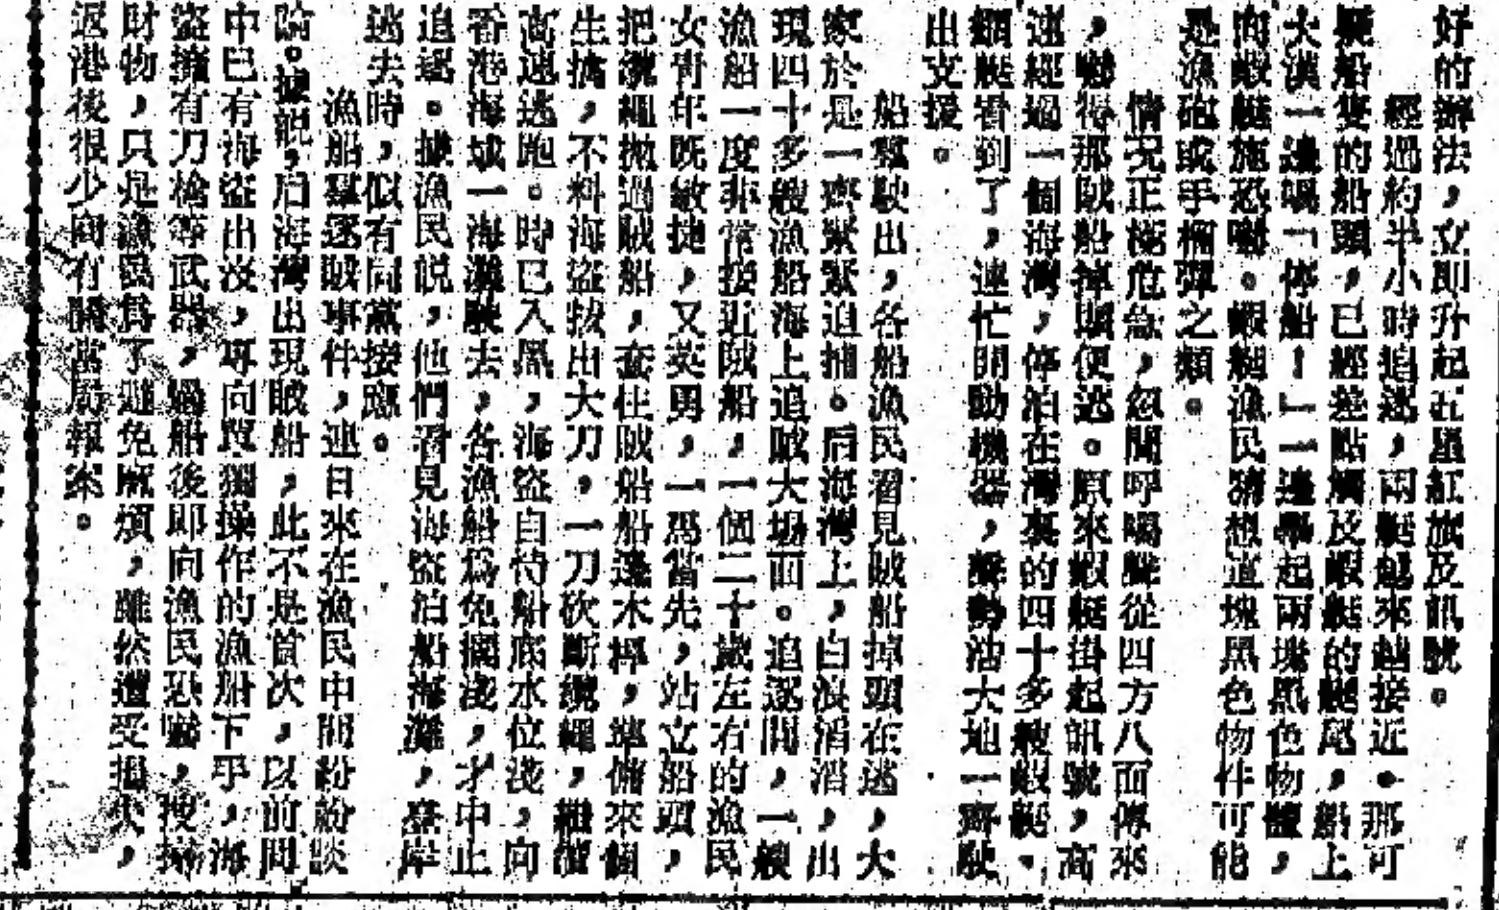 好的辦法，立即升起五星紅旗及訊號。
經過約半小時追逐，兩艇越來越接近。那可
疑船隻的船頭，已經差點觸及蝦艇的艇尾，船上
大漢一邊喝「停船！」一邊舉起兩塊黑色物體，
向蝦艇施恐嚇。蝦艇漁民猜想這塊黑色物件可能
是漁砲或手榴彈之類。
情況正極危急，忽聞呼喝聲從四方八面傳來
，嚇得那賊船掉頭便逃。原來蝦艇掛起訊號，高
速經過一個海灣，停泊在灣裏的四十多艘蝦艇。
網艇看到了，連忙開動機器，聲勢浩大地一齊駛
出支援。
船羣駛出，各船漁民習見賊船掉頭在逃，大
家於是一齊緊緊追捕。后海灣上，白浪滔滔，出
現四十多艘漁船海上追賊大場面。追逐間，一艘
漁船一度非常接近賊船，一個二十歲左右的漁民
女青年既敏捷，又英勇，一馬當先，站立船頭，
把纜繩拋過賊船，套住賊船船邊木樁，準備來個
生擒，不料海盜拔出大刀，一刀砍斷纜繩，繼續
高速逃跑。時已入黑，海盜自恃船底水位淺，向
香港海域一海灘駛去，各漁船爲免擱淺，才中止
追逐。據漁民說，他們看見海盜泊船海灘，棄岸
逃去時，似有同黨接應。
漁船羣逐賊事件，連日來在漁民中間紛紛談
論。據說，后海灣出現賊船，此不是首次，以前間
中已有海盜出沒，專向單獨操作的漁船下手，海
盜擁有刀槍等武器，過船後即向漁民恐嚇，搜掠
財物，只是漁民爲了避免麻煩，雖然遭受損失，
返港後很少向有關當局報案。